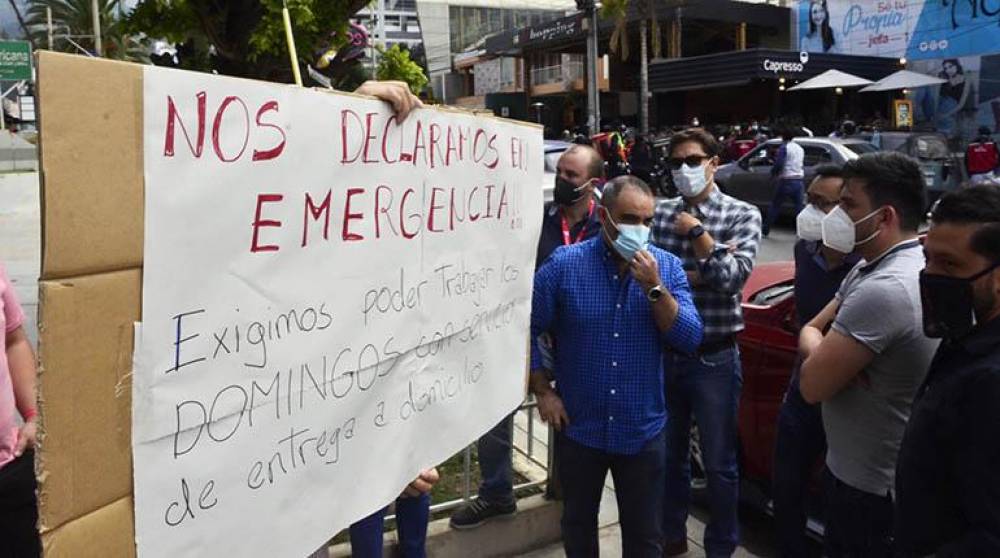 NOS DECLARAMOS EN
EMERGENCIA!!
Exigimos poder Trabajar los
DOMINGOS con servicio
de entrega a domicilio
Capresso
ricana
Sé tu
Propia
jefa